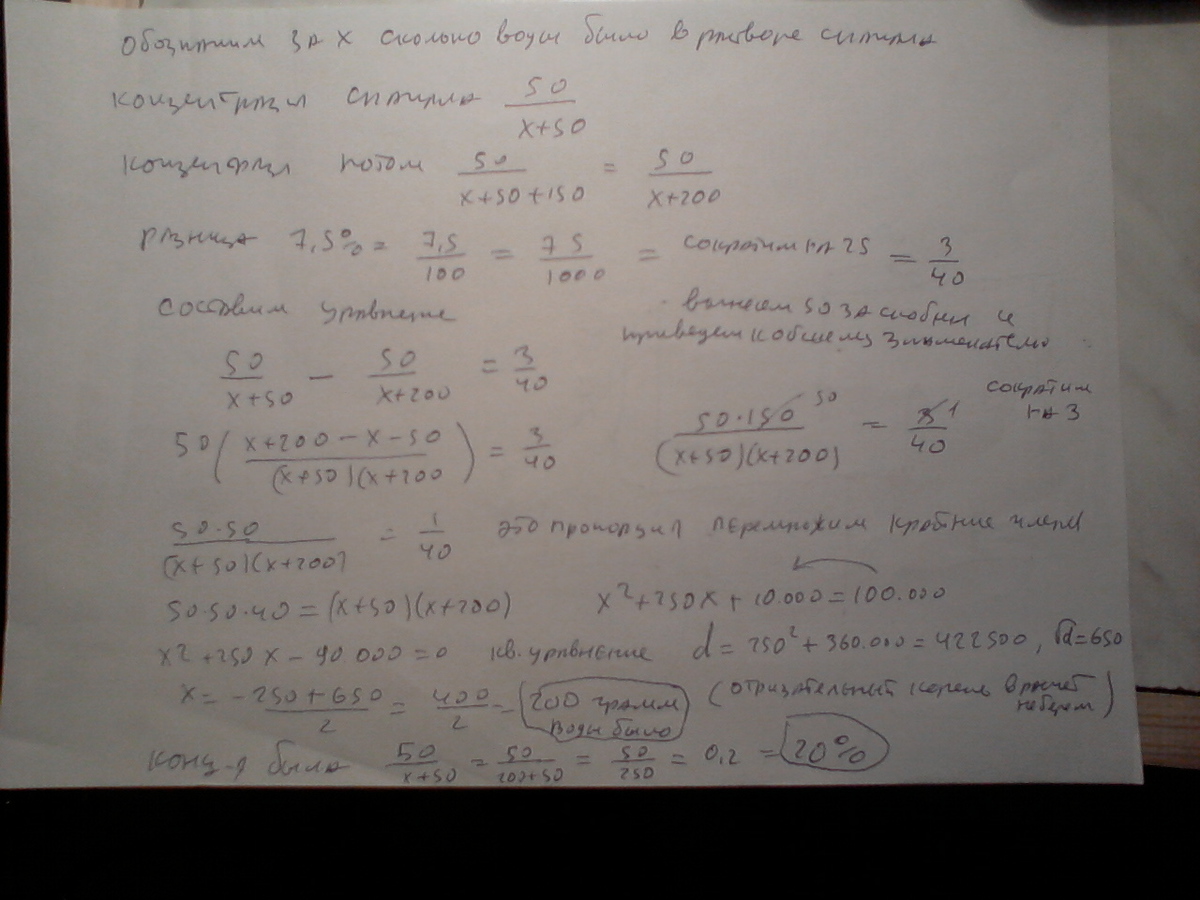 Обозначим за x сколько воды было в растворе спирта
концентрация спирта 50/(x+50)
концентрация потом 50/(x+50+150) = 50/(x+200)
разница 7,5% = 7,5/100 = 75/1000 = сократим на 25 = 3/40
составим уравнение
вынесем 50 за скобки и
приведем к общему знаменателю
50/(x+50) − 50/(x+200) = 3/40
50((x+200−x−50)/((x+50)(x+200)) = 3/40
50·150 50/((x+50)(x+200)) = 3 1/40 сократим на 3
50·50/((x+50)(x+200)) = 1/40 это пропорция перемножим крайние члены
50·50·40=(x+50)(x+200) x²+250x+10.000=100.000
x²+250x−90 000=0 кв. уравнение d=250²+360.000=422500, √d=650
x= (−250+650)/2 = 400/2 = 200 грамм воды было (отрицательный корень в расчет не берем)
конц-я была 50/(x+50) = 50/(200+50) = 50/250 = 0,2 = 20%